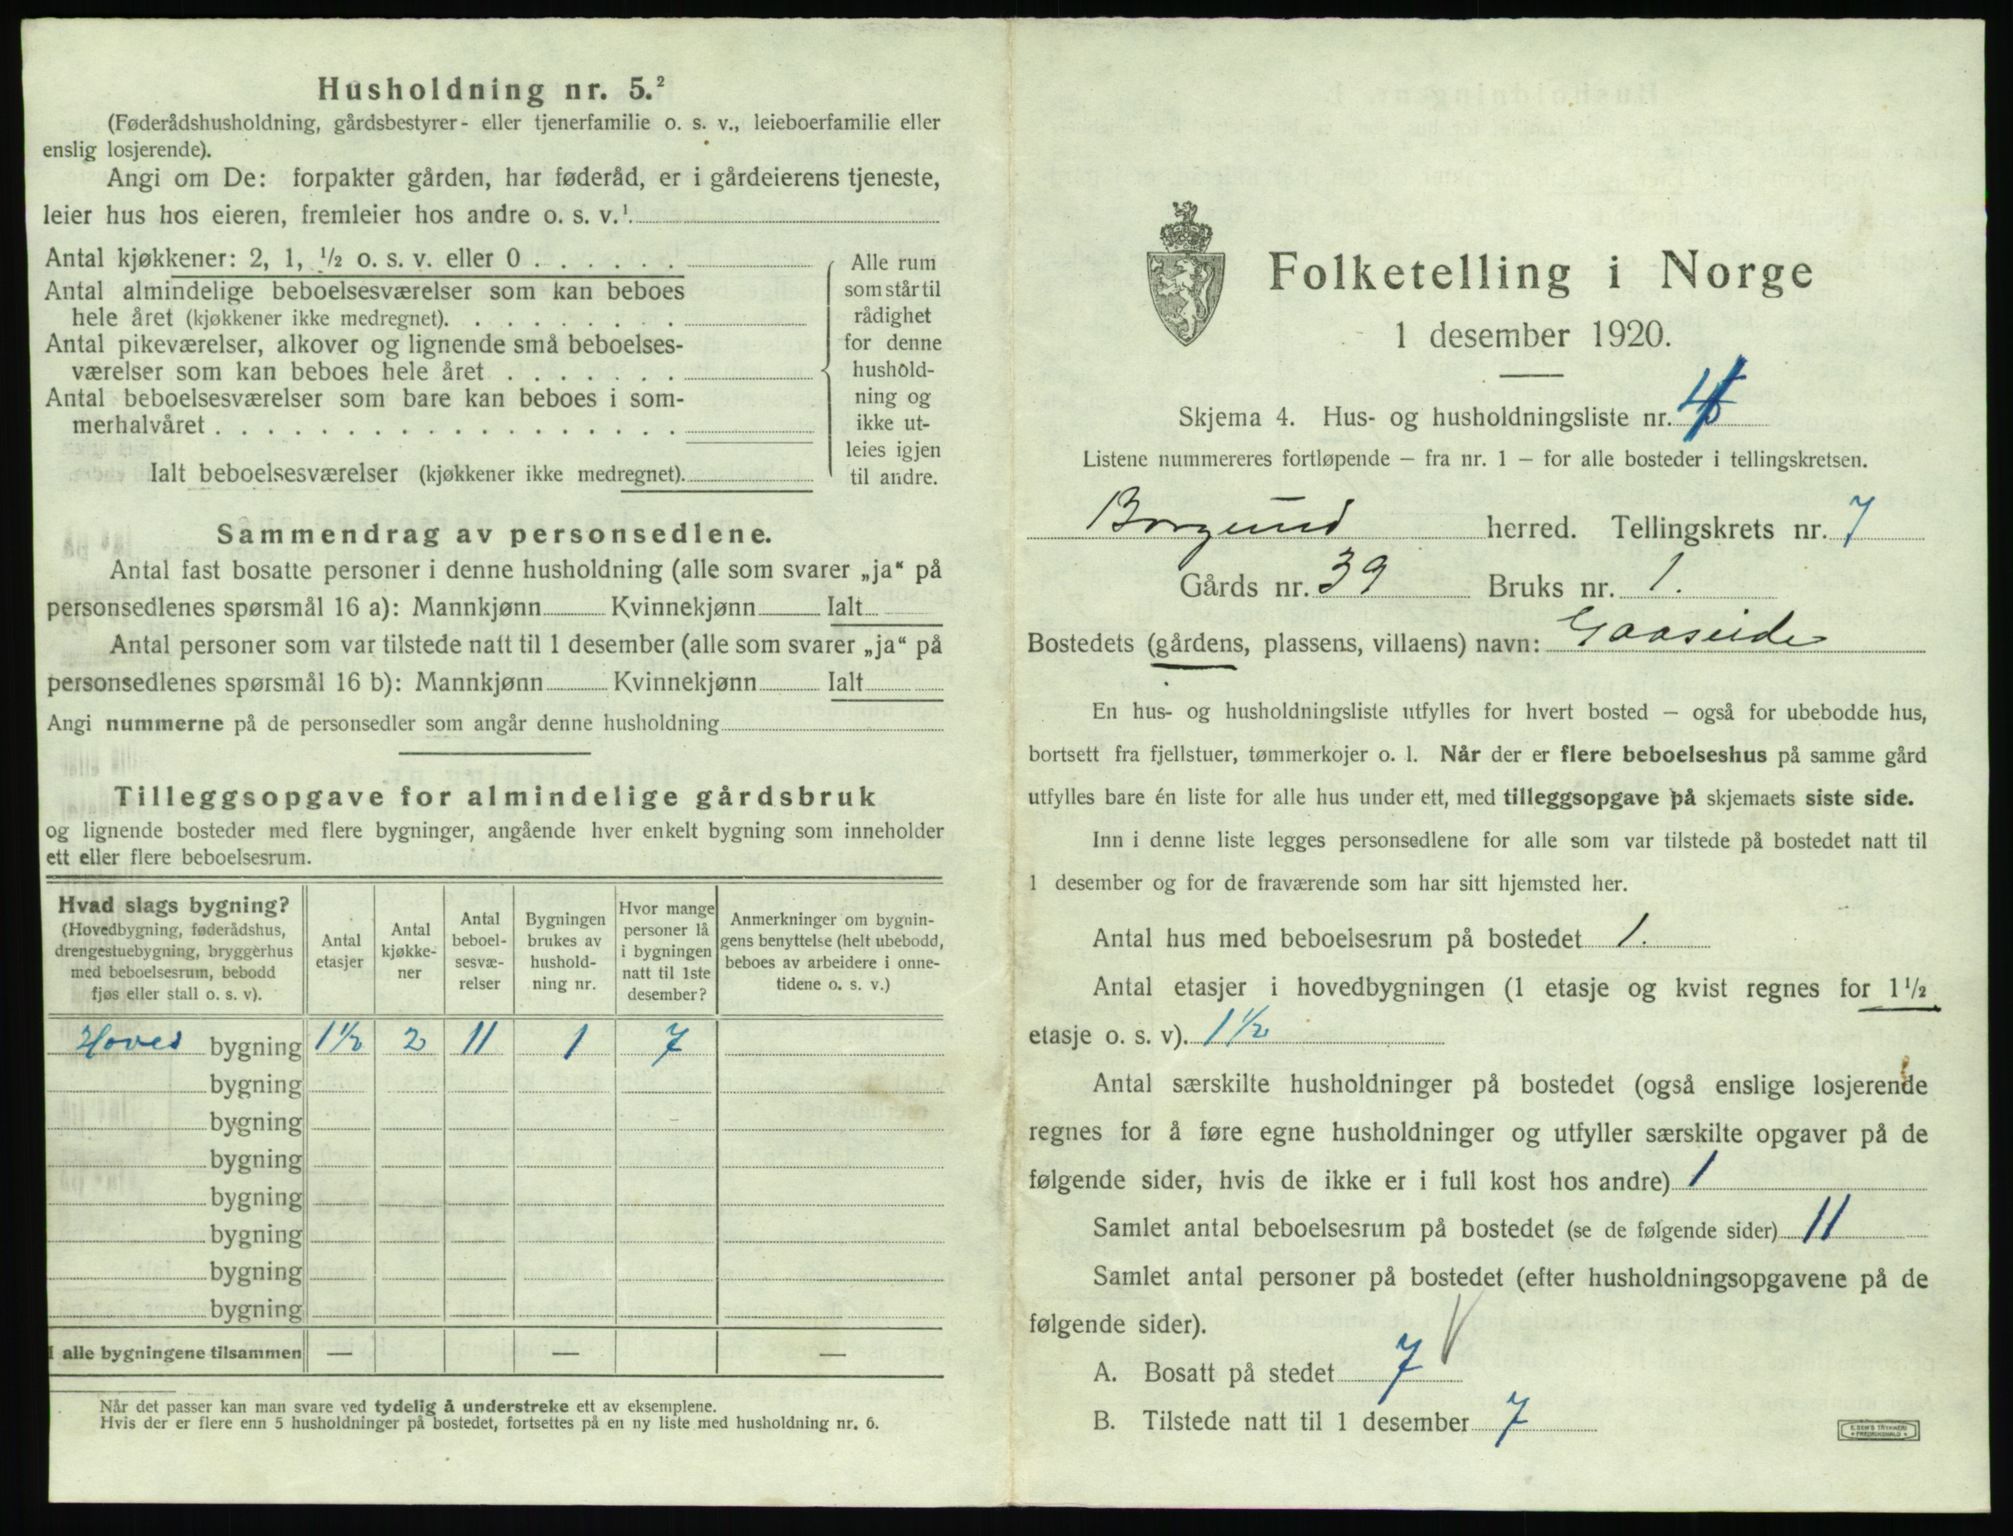 Husholdning nr. 5.²
(Føderådshusholdning, gårdsbestyrer- eller tjenerfamilie o. s. v., leieboerfamilie eller
enslig losjerende).
Angi om De: forpakter gården, har føderåd, er i gårdeierens tjeneste,
leier hus hos eieren, fremleier hos andre o. s. v.¹
Antal kjøkkener: 2, 1, ½ o. s. v. eller 0 . . . . . .
Antal almindelige beboelsesværelser som kan beboes
hele året (kjøkkener ikke medregnet). . . . . . . . .
Antal pikeværelser, alkover og lignende små beboelses-
værelser som kan beboes hele året . . . . . . .
Antal beboelsesværelser som bare kan beboes i som-
merhalvåret . . . . . . . . . . . . . . . . . .
Ialt beboelsesværelser (kjøkkener ikke medregnet).
Alle rum
som står til
rådighet
for denne
hushold-
ning og
ikke ut-
leies igjen
til andre.
Sammendrag av personsedlene.
Antal fast bosatte personer i denne husholdning (alle som svarer „ja“ på
personsedlenes spørsmål 16 a): Mannkjønn Kvinnekjønn Ialt
Antal personer som var tilstede natt til 1 desember (alle som svarer „ja“ på
personsedlenes spørsmål 16 b): Mannkjønn Kvinnekjønn Ialt
Angi nummerne på de personsedler som angår denne husholdning
Tilleggsopgave for almindelige gårdsbruk
og lignende bosteder med flere bygninger, angående hver enkelt bygning som inneholder
ett eller flere beboelsesrum.
Hvad slags bygning?
(Hovedbygning, føderådshus,
drengestuebygning, bryggerhus
med beboelsesrum, bebodd
fjøs eller stall o. s. v).
Antal
etasjer
Antal
kjøkke-
ner
Antal
beboel-
sesvæ-
relser
Bygningen
brukes av
hushold-
ning nr.
Hvor mange
personer lå
i bygningen
natt til 1ste
desember?
Anmerkninger om bygnin-
gens benyttelse (helt ubebodd,
beboes av arbeidere i onne-
tidene o. s. v.)
Hoved bygning 1½ 2 11 1 7
bygning
bygning
bygning
bygning
bygning
bygning
bygning
I alle bygningene tilsammen — — —
Når det passer kan man svare ved tydelig å understreke ett av eksemplene.
Hvis der er flere enn 5 husholdninger på bostedet, fortsettes på en ny liste med husholdning nr. 6.
Folketelling i Norge
1 desember 1920.
Skjema 4. Hus- og husholdningsliste nr. 4
Listene nummereres fortløpende – fra nr. 1 – for alle bosteder i tellingskretsen.
Borgund herred. Tellingskrets nr. 7
Gårds nr. 39 Bruks nr. 1.
Bostedets (gårdens, plassens, villaens) navn: Gaaseide
En hus- og husholdningsliste utfylles for hvert bosted – også for ubebodde hus,
bortsett fra fjellstuer, tømmerkojer o. l. Når der er flere beboelseshus på samme gård
utfylles bare én liste for alle hus under ett, med tilleggsopgave på skjemaets siste side.
Inn i denne liste legges personsedlene for alle som var tilstede på bostedet natt til
1 desember og for de fraværende som har sitt hjemsted her.
Antal hus med beboelsesrum på bostedet 1.
Antal etasjer i hovedbygningen (1 etasje og kvist regnes for 1½
etasje o. s. v). 1½
Antal særskilte husholdninger på bostedet (også enslige losjerende
regnes for å føre egne husholdninger og utfyller særskilte opgaver på de
følgende sider, hvis de ikke er i full kost hos andre) 1
Samlet antal beboelsesrum på bostedet (se de følgende sider) 11
Samlet antal personer på bostedet (efter husholdningsopgavene på de
følgende sider).
A. Bosatt på stedet 7
B. Tilstede natt til 1 desember 7